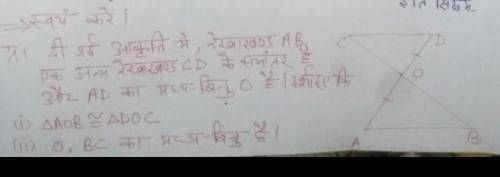 स्वयं करे।
प्र। दी गई आकृति में, रेखाखण्ड AB,
एक अन्य रेखाखण्ड CD के समांतर है
और AD का मध्य-बिन्दु O है। दर्शाइए कि
(i) ΔAOB ≅ ΔDOC
(ii) O, BC का मध्य-बिन्दु है।
C D
O
A B